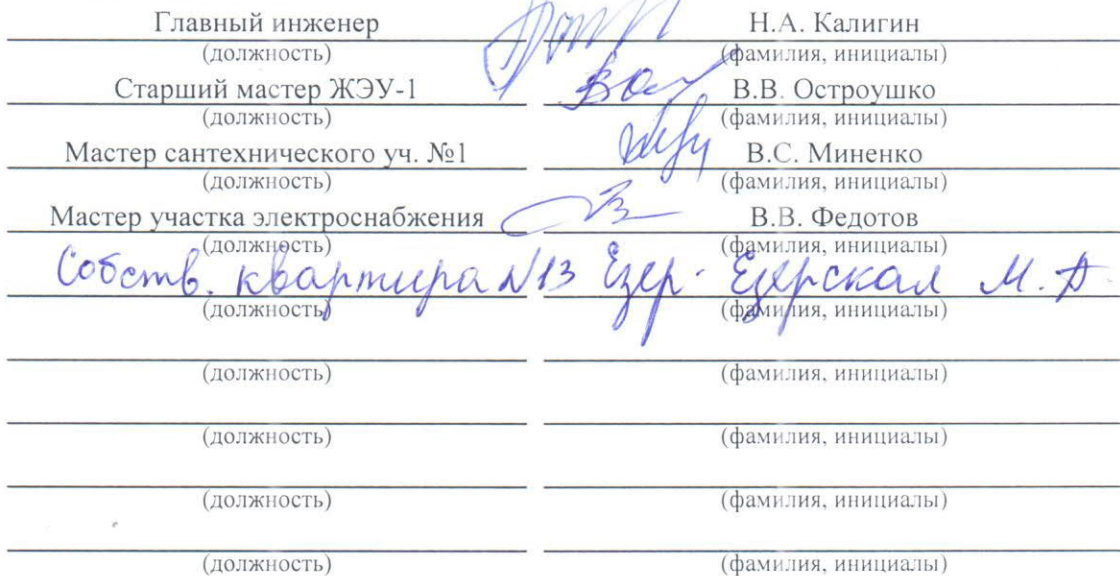 Главный инженер Н.А. Калигин
(должность) (фамилия, инициалы)
Старший мастер ЖЭУ-1 В.В. Остроушко
(должность) (фамилия, инициалы)
Мастер сантехнического уч. №1 В.С. Миненко
(должность) (фамилия, инициалы)
Мастер участка электроснабжения В.В. Федотов
(должность) (фамилия, инициалы)
Собств. квартира №13 Езер- Езерская М.А.
(должность) (фамилия, инициалы)
(должность) (фамилия, инициалы)
(должность) (фамилия, инициалы)
(должность) (фамилия, инициалы)
(должность) (фамилия, инициалы)